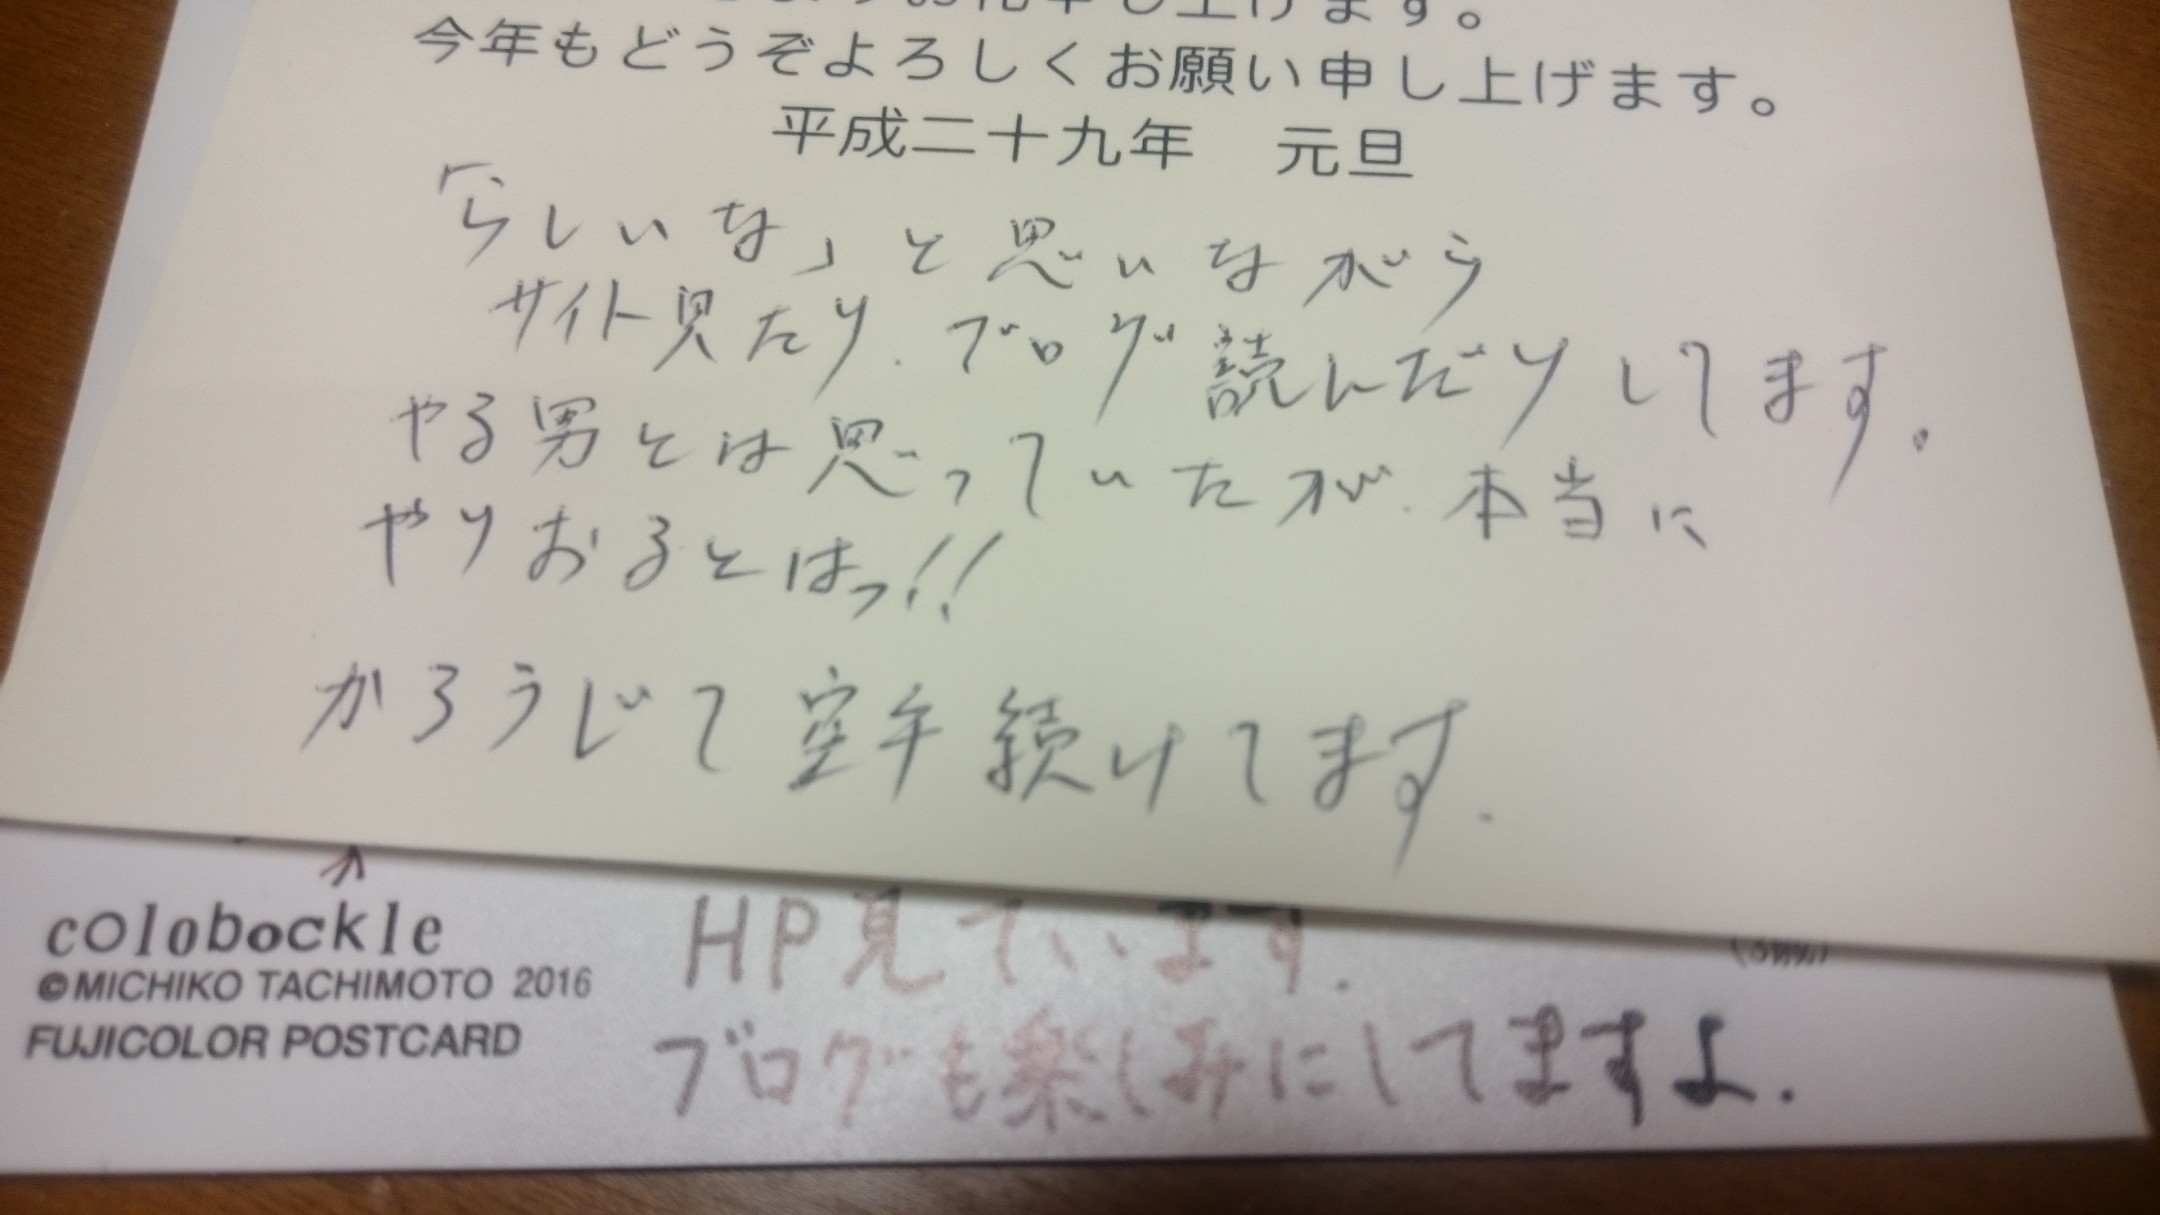 お礼申し上げます。
今年もどうぞよろしくお願い申し上げます。
平成二十九年　元旦
「らしいな」と思いながら
サイト見たり、ブログ読んだりしてます。
やる男とは思っていたが、本当に
やりおるとはっ!!
かろうじて空手続けてます.
colobockle
©MICHIKO TACHIMOTO 2016
FUJICOLOR POSTCARD
HP見ています.
ブログも楽しみにしてますよ.